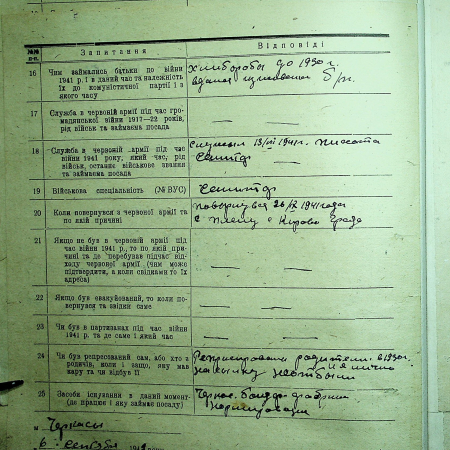 №№ п-п.
Запитання
Відповіді
16
Чим займались батьки до війни
1941 р. і в даний час та належність
їх до комуністичної партії і з
якого часу
Хлибороби до 1930 г.
б/п.
17
Служба в червоній армії під час гро-
мадянської війни 1917—22 років,
рід військ та займаєма посада
— —
18
Служба в червоній армії під час
війни 1941 року, який час, рід
військ, останнє військове звання
та займаєма посада
служил 13/VII 1941 г. пихота
— —
19
Військова спеціальність (№ ВУС)
20
Коли повернувся з червоної армії та
по якій причині
повернувся 26/IX 1941 года
с плену с Кирово града
21
Якщо не був в червоній армії під
час війни 1941 р., то по якій при-
чині та де перебував підчас від-
ходу червоної армії (чим може
підтвердити, а коли свідками то їх
адреса)
— —
— —
22
Якщо був евакуйований, то коли по-
вернувся та звідки саме
— —
23
Чи був в партизанах під час війни
1941 р. та де саме і який час
— —
24
Чи був репресований сам, або хто з
родичів, коли і защо, яку мав
кару та чи відбув її
Реприсированы родители в 1930 г.
на сылку
25
Засоби існування в даний момент-
(де працює і яку займає посаду)
фабрика
м. Черкасы
6. сентября 194